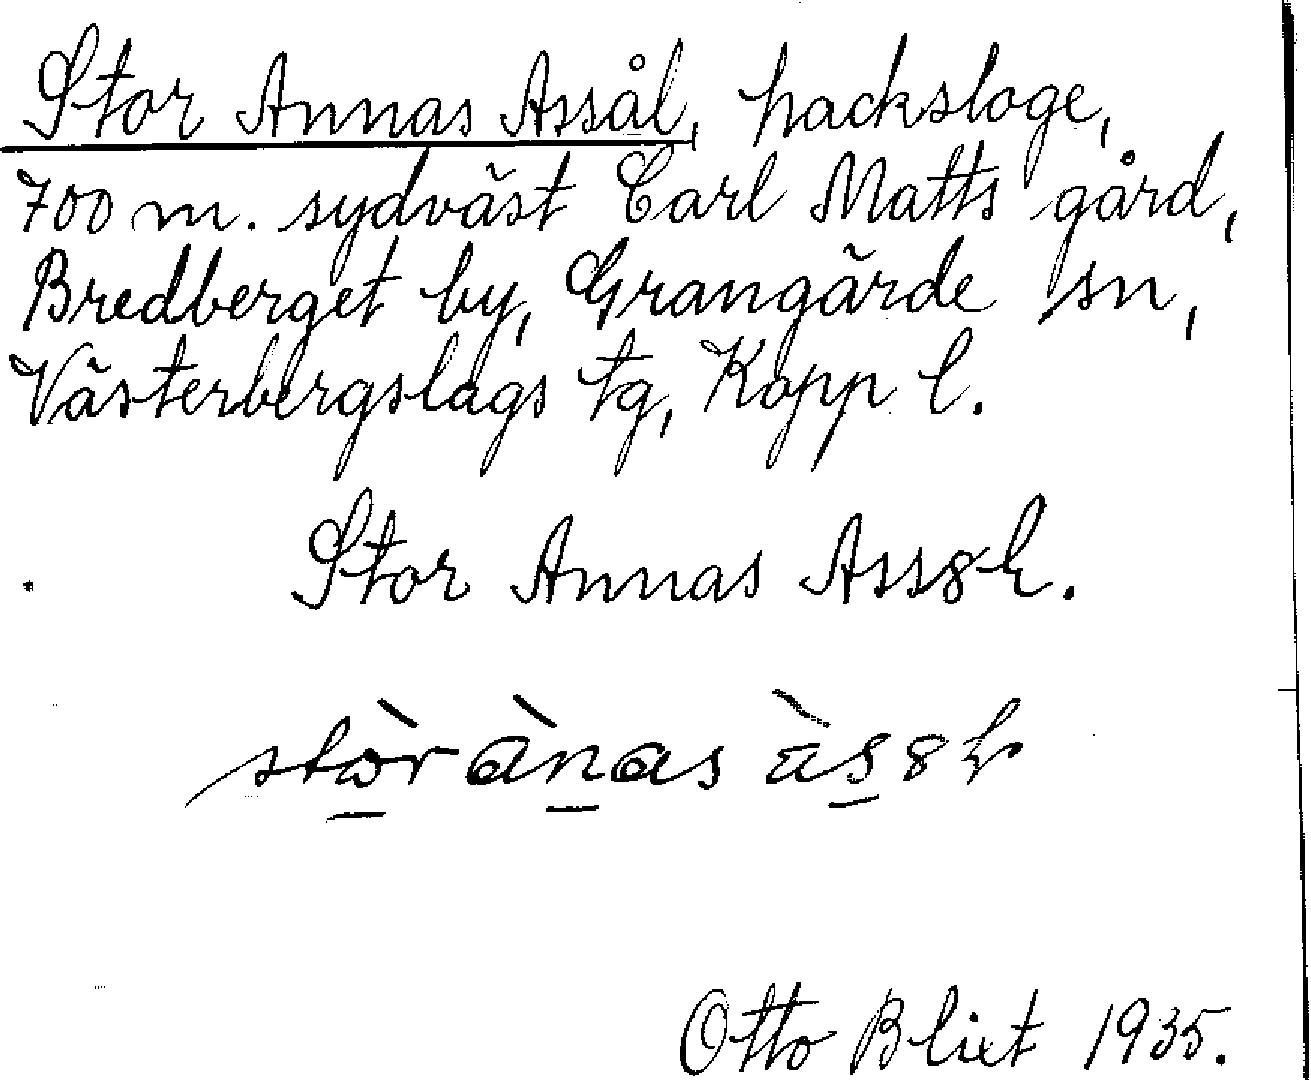 Stor Annas Assål, hacksloge,
700 m. sydväst Carl Matts gård,
Bredberget by, Grangärde sn,
Västerbergslags tg, Kopp l.
Stor Annas
Otto Blixt 1935.